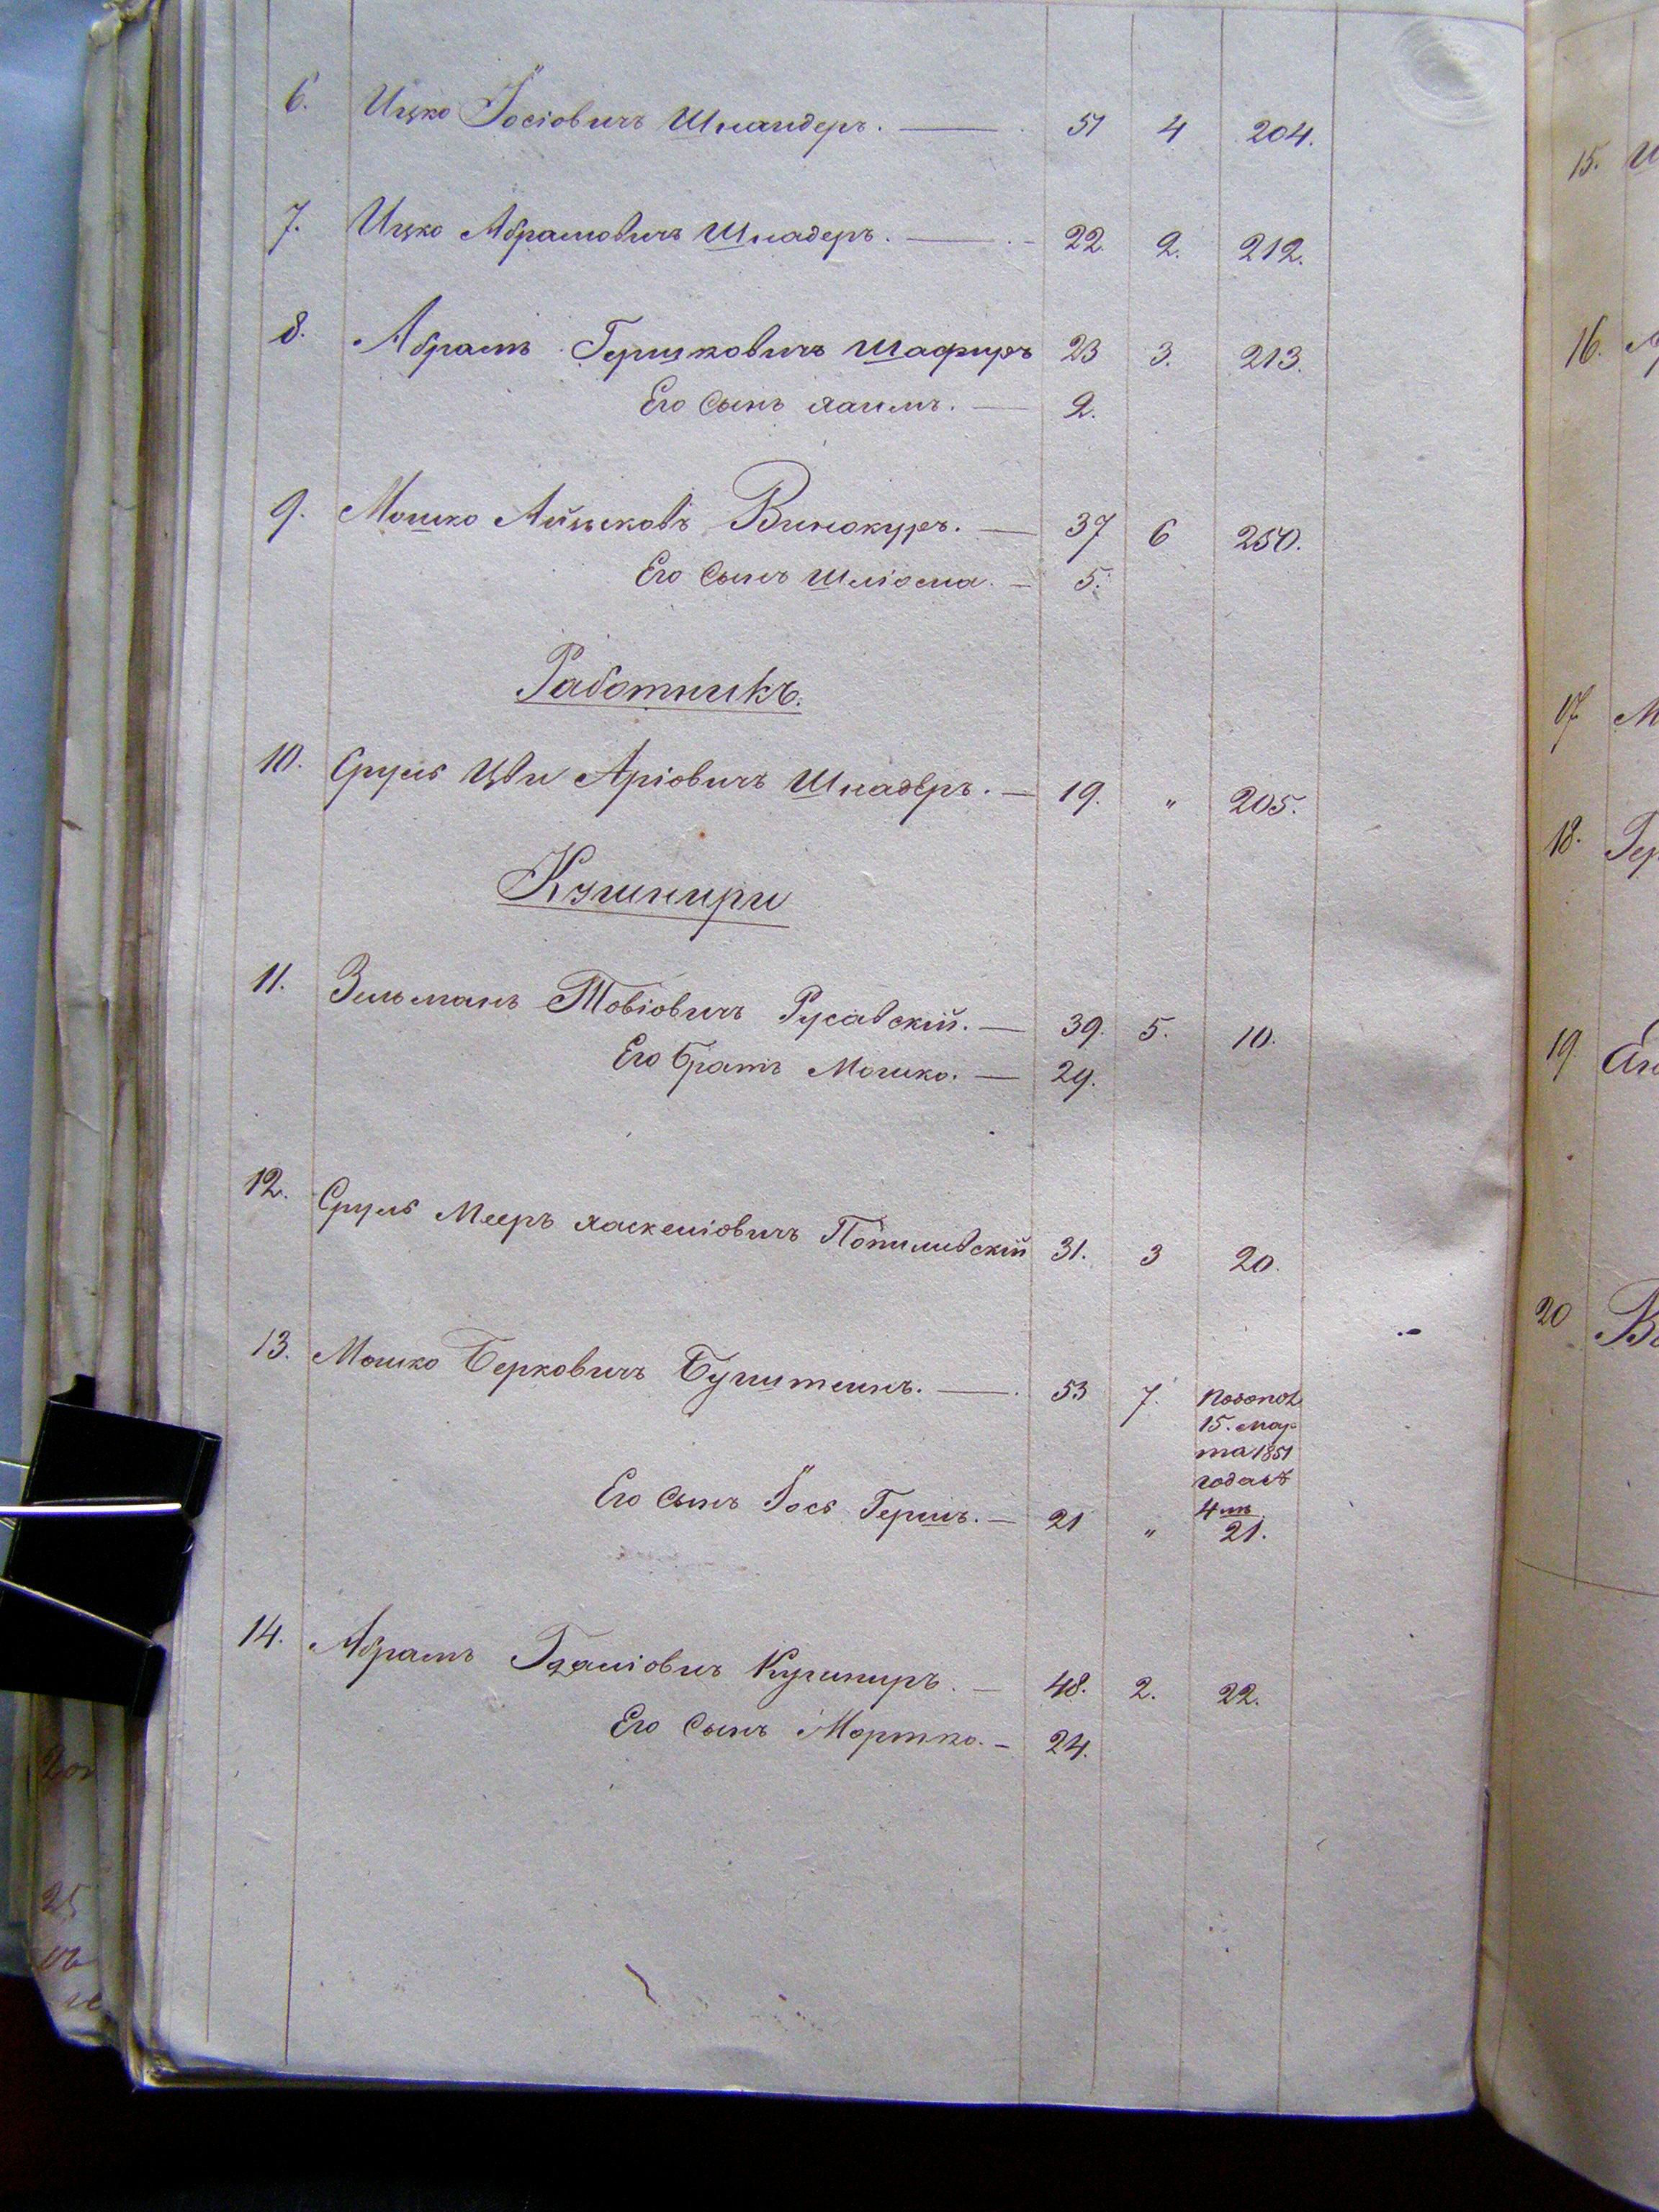 6. Ицко Іосіовичъ Шнаидеръ. — 51 4 204.
7. Ицко Абрамовичъ Шнадеръ. — 22. 2. 212.
8. Абрамъ Гершковичъ Шафиръ 23 3. 213.
Его Сынъ Хаимъ. — 2.
9. Мошко Айзыковъ Винокуръ. — 37 6 250.
Его Сынъ Шліома. — 5.
Работникъ.
10. Сруль Цви Аріовичъ Шнадеръ. — 19. " 205.
Кушнири
11. Зельманъ Товіовичъ Русавскій. — 39. 5. 10.
Его братъ Мошко. — 29.
12. Сруль Мееръ Хаскеліовичъ Попиливскій 31. 3 20.
13. Мошко Берковичъ Бунштеинъ. — 53 7.
15. Мар
та 1851
года
4
Его Сынъ Іось Гершъ. — 21 " 21.
14. Абрамъ Гдаліовичъ Кушниръ. — 48. 2. 22.
Его Сынъ Мортко. — 24.
15.
16.
17
18. Гер
19.
20